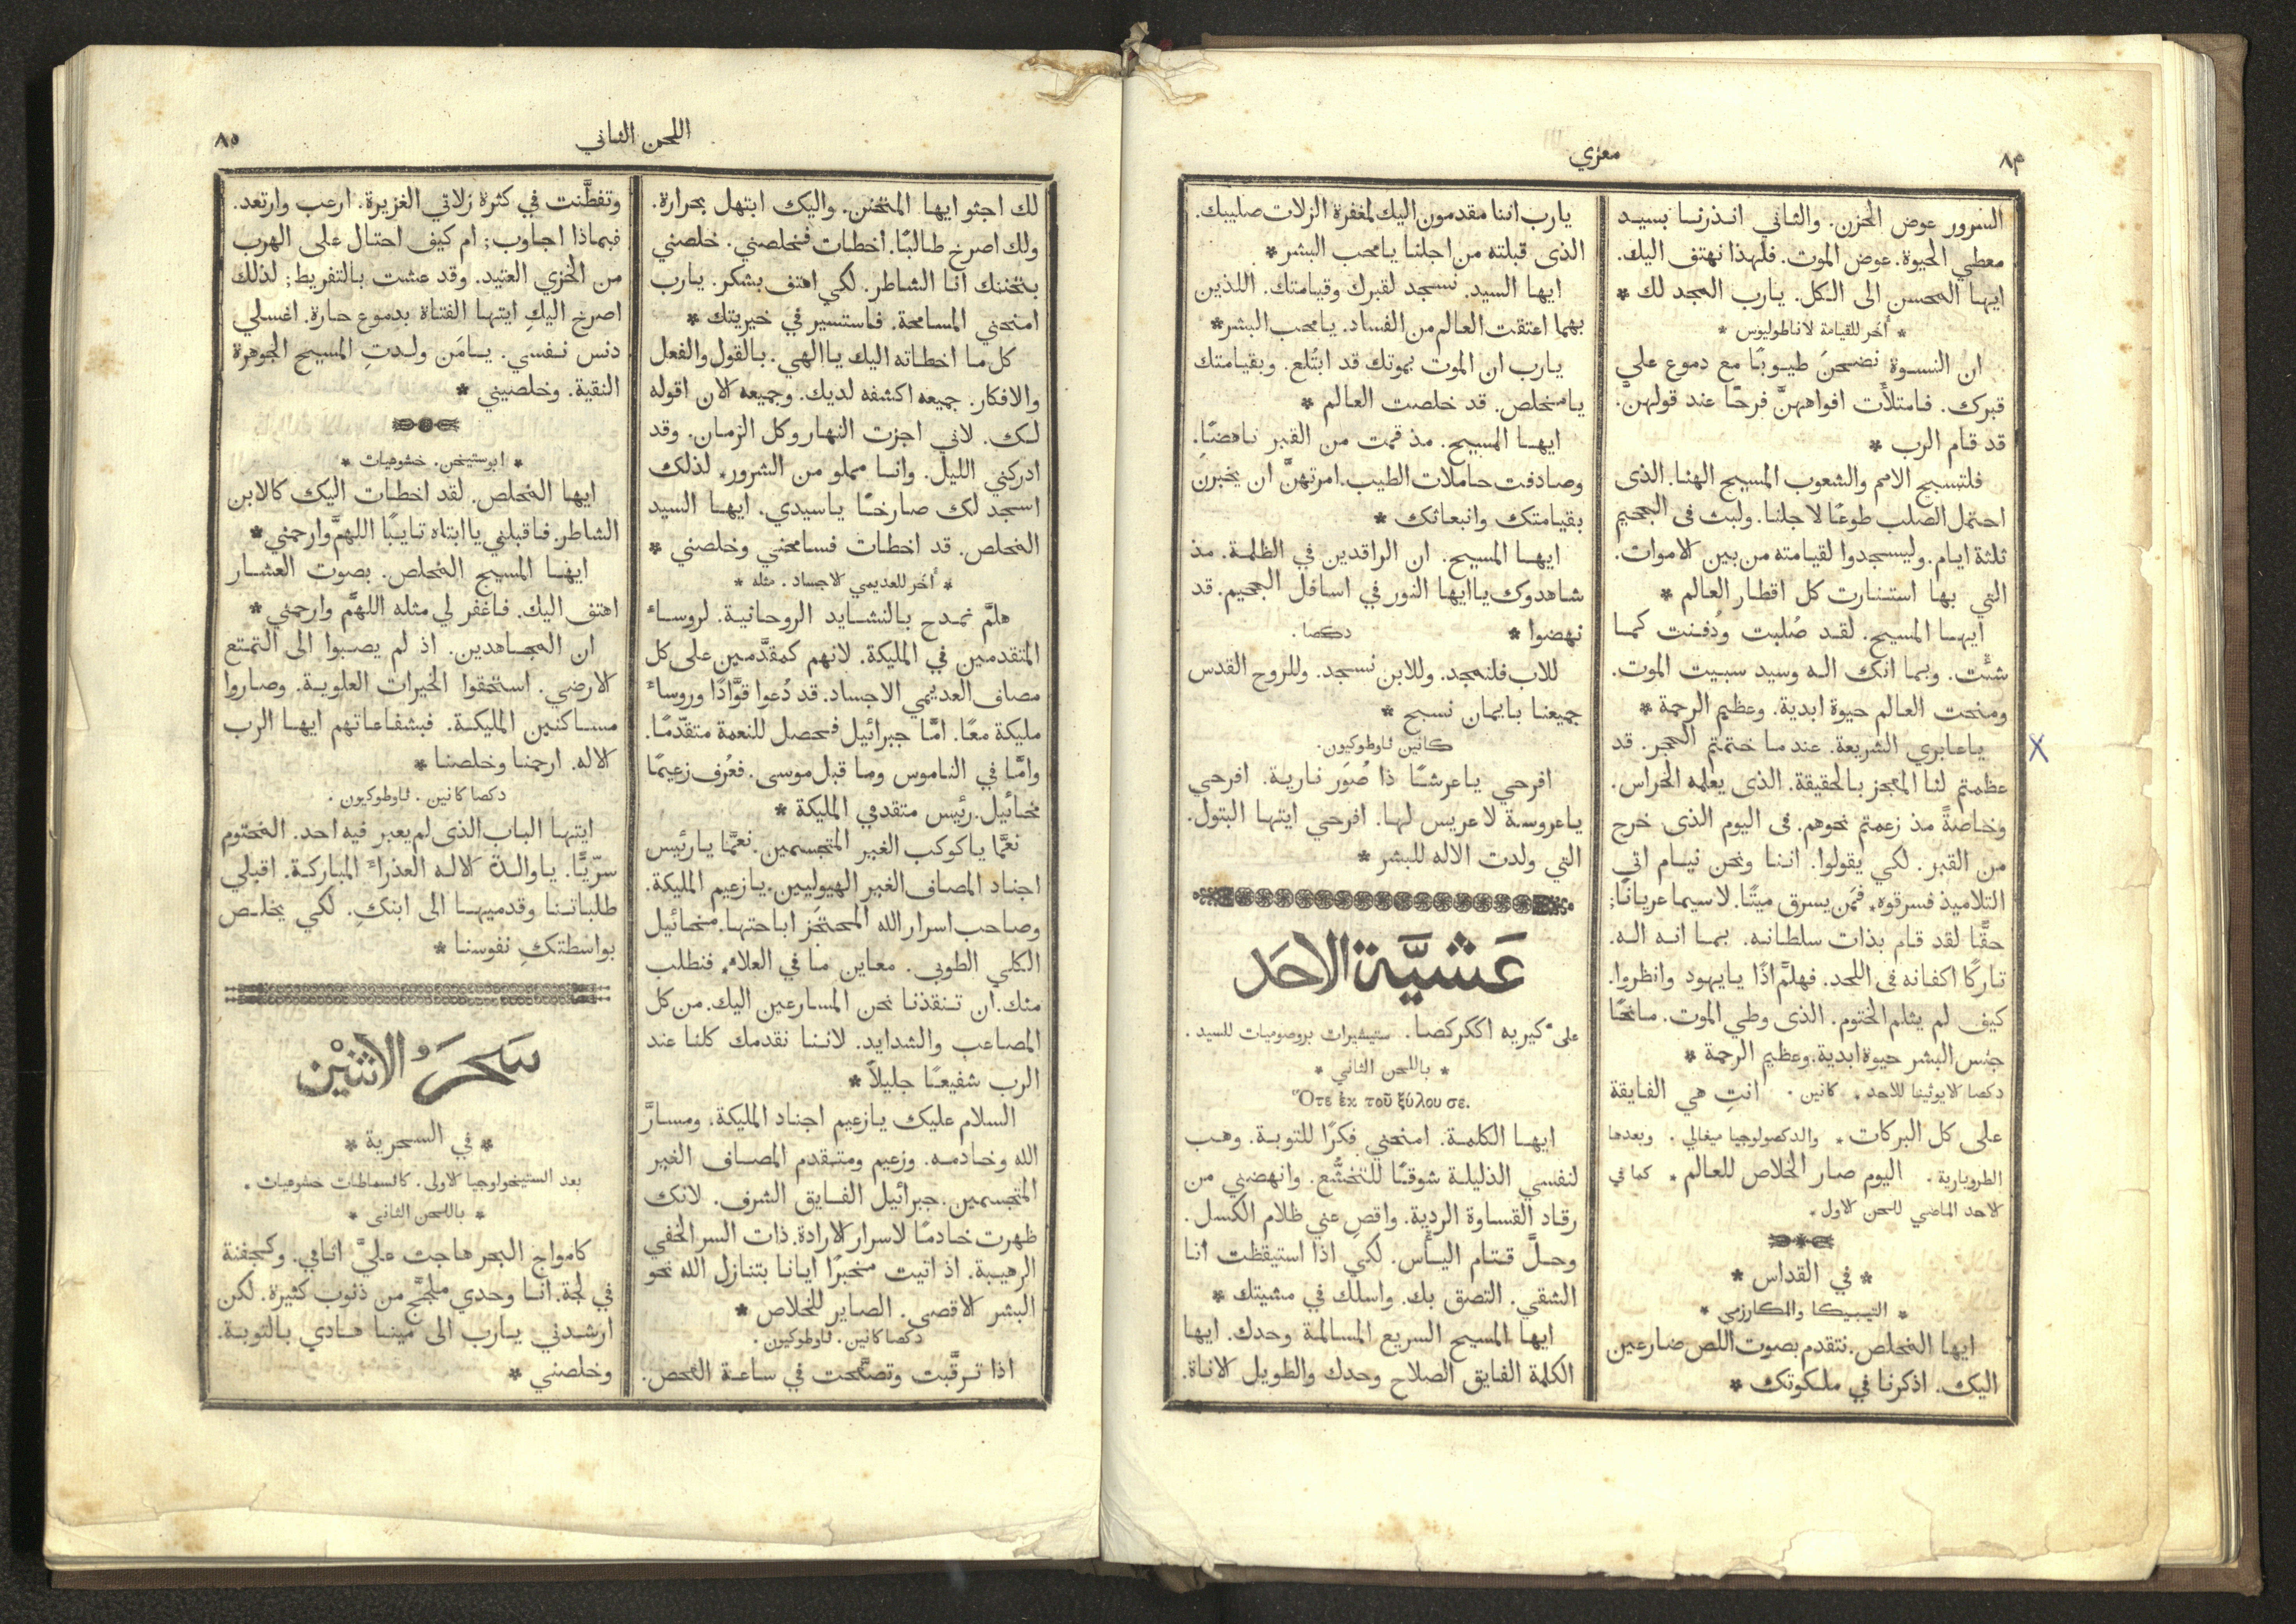 ٨٤
معزي
السرور عوض الحزن. والثاني انذرنا بسيد
معطي الحيوة. عوض الموت. فلهذا نهتف اليك.
ايها المحسن الى الكل. يارب المجد لك *
* أخر للقيامة لاناطوليوس *
ان النسوة نضحنَ طيوبًا مع دموع علي
قبرك. فامتلأَت افواههنَّ فرحًا عند قولهنَّ.
قد قام الرب *
فلتسبح الامم والشعوب المسيح الهنا. الذى
احتمل الصلب طوعًا لاجلنا. ولبث فى الجحيم
ثلثة ايام. وليسجدوا لقيامته من بين الاموات.
التي بها استنارت كل اقطار العالم *
ايها المسيح. لقد صُلبت ودُفنت كما
شئت. وبما انك اله وسيد سبيت الموت.
ومنحت العالم حيوة ابدية. وعظيم الرحمة *
ياعابري الشريعة. عند ما ختمتم الحجر. قد
X
عظمتم لنا المعجز بالحقيقة. الذى يعلمه الحراس.
وخاصةً مذ زعمتم نحوهم. فى اليوم الذى خرج
من القبر. لكي يقولوا. اننا ونحن نيام اتي
التلاميذ فسرقوه. فمَن يسرق ميتًا. لاسيما عريانًا;
حقًّا لقد قام بذات سلطانه. بما انه اله.
تاركًا اكفانه فى اللحد. فهلمَّ اذًا يايهود وانظروا.
كيف لم يثلم الختوم. الذى وطي الموت. مانحًا
جنس البشر حيوة ابدية. وعظيم الرحمة *
دكصا لايوثينا للاحد. كانين. انتِ هي الفايقة
على كل البركات * والدكصولوجيا ميغالي. وبعدها
الطروبارية. اليوم صار الخلاص للعالم. كما في
لاحد الماضي للحن لاول.
* في القداس *
* التيبيكا والمكارزمي *
ايها المخلص. نتقدم بصوت اللص ضارعين
اليك. اذكرنا في ملكوتك *
يارب اننا مقدمون اليك لمغفرة الزلات صليبك.
الذى قبلته من اجلنا يامحب البشر *
ايها السيد. نسجد لقبرك وقيامتك. اللذين
بهما اعتقت العالم من الفساد. يامحب البشر *
يارب ان الموت بموتك قد ابتُلع. وبقيامتك
يامخلص. قد خلصت العالم *
ايها المسيح. مذ قمت من القبر ناهضًا.
وصادفت حاملات الطيب. امرتهنَّ ان يخبرن
بقيامتك وانبعاثك *
ايها المسيح. ان الراقدين في الظلمة. مذ
شاهدوك ياايها النور في اسافل الجحيم. قد
نهضوا * دكصا.
للاب فلنمجد. وللابن نسجد. وللروح القدس
جميعنا بايمان نسبح *
كانين ثاوطوكيون.
افرحي ياعرشًا ذا صُوَر نارية. افرحي
ياعروسة لاعريس لها. افرحي ايتها البتول.
التي ولدت الاله للبشر *
عَشيَّة الاحَد
على كيريه اككركصا. ستيشيرات بروصوميات للسيد.
* باللحن الثاني *
Ὅτε ἐκ τοῦ ξύλου σε.
ايها الكلمة. امنحني فكرًا للتوبة. وهب
لنفسي الذليلة شوقًا للتخشُّع. وانهضني من
رقاد القساوة الردية. واقصِ عني ظلام الكسل.
وحلَّ قتام اليأس. لكي اذا استيقظت انا
الشقي. التصق بك. واسلك في مشيتك *
ايها المسيح السريع المسالمة وحدك. ايها
الكلمة الفايق الصلاح وحدك والطويل الاناة.
اللحن الثاني
٨٥
لك اجثو ايها المتحنن. واليك ابتهل بحرارة.
ولك اصرخ طالبًا. اخطات فخلصني. خلصني
بتحننك انا الشاطر. لكي اهتف بشكر. يارب
امنحني المسامحة. فاستسير في خيريتك *
كل ما اخطاته اليك ياالهي. بالقول والفعل
والافكار. جميعه اكشفه لديك. وجميعه الان اقوله
لك. لاني اجزت النهار وكل الزمان. وقد
ادركني الليل. وانا مملو من الشرور. لذلك
اسجد لك صارخًا ياسيدي. ايها السيد
المخلص. قد اخطات فسامحني وخلصني *
* أخر للعديمي لاجساد. مثله *
هلمَّ نمدح بالنشايد الروحانية. لروساء
المتقدمين في المليكة. لانهم كمقدَّمين على كل
مصاف العديمي الاجساد. قد دُعوا قوَّادًا وروساء
مليكة معًا. امَّا جبرائيل فحصل للنعمة متقدّمًا.
وامَّا في الناموس وما قبل موسى. فعُرف زعيمًا
مخائيل. رئيس متقدمي المليكة *
نعمَّا ياكوكب الغير المتجسمين. نعمَّا يارئيس
اجناد المصاف الغير الهيوليين. يازعيم المليكة.
وصاحب اسرار الله المحتجَز اباحتها. مخائيل
الكلي الطوبى. معاين ما في العلاء. فنطلب
منك. ان تنقذنا نحن المسارعين اليك. من كل
المصاعب والشدايد. لاننا نقدمك كلنا عند
الرب شفيعًا جليلًا *
السلام عليك يازعيم اجناد المليكة. ومسارَّ
الله وخادمه. وزعيم ومتقدم المصاف الغير
المتجسمين. جبرائيل الفايق الشرف. لانك
ظهرت خادمًا لاسرار لارادة. ذات السر الخفي
الرهيبة. اذ اتيت مخبرًا ايانا بتنازل الله نحو
البشر لاقصى. الصاير للخلاص *
دكصا كانين. ثاوطوكيون.
اذا ترقَّبت وتصفَّحت في ساعة الفحص.
وتفطَّنت في كثرة زلاتي الغزيرة. ارعب وارتعد.
فبماذا اجاوب; ام كيف احتال على الهرب
من الخزي العتيد. وقد عشت بالتفريط; لذلك
اصرخ اليكِ ايتها الفتاة بدموع حارة. اغسلي
دنس نفسي. يامَن ولدتِ المسيح الجوهرة
النقية. وخلصيني *
* ابوستيخن. خشوعيات *
ايها المخلص. لقد اخطات اليك كالابن
الشاطر. فاقبلني ياابتاه تايبًا اللهمَّ وارحمني *
ايها المسيح المخلص. بصوت العشار
اهتف اليك. فاغفر لي مثله اللهمَّ وارحمني *
ان المجاهدين. اذ لم يصبوا الى التمتع
لارضي. استحقوا الخيرات العلوية. وصاروا
مساكنين المليكة. فبشفاعاتهم ايها الرب
لاله. ارحمنا وخلصنا *
دكصا كانين. ثاوطوكيون.
ايتها الباب الذى لم يعبر فيه احد. المختوم
سرّيًّا. ياوالدة لاله العذراء المباركة. اقبلي
طلباتنا وقدميها الى ابنكِ. لكي يخلص
بواسطتكِ نفوسنا *
سَحَرُ الاثنَيْن
* في السحرية *
بعد الستيخولوجيا لاولى. كاثسماطات خشوعيات.
* باللحن الثانى *
كامواج البحر هاجت عليَّ اثامي. وكجفنة
في لجة. انا وحدي ملجَّج من ذنوب كثيرة. لكن
ارشدني يارب الى مينا هادي بالتوبة.
وخلصني *